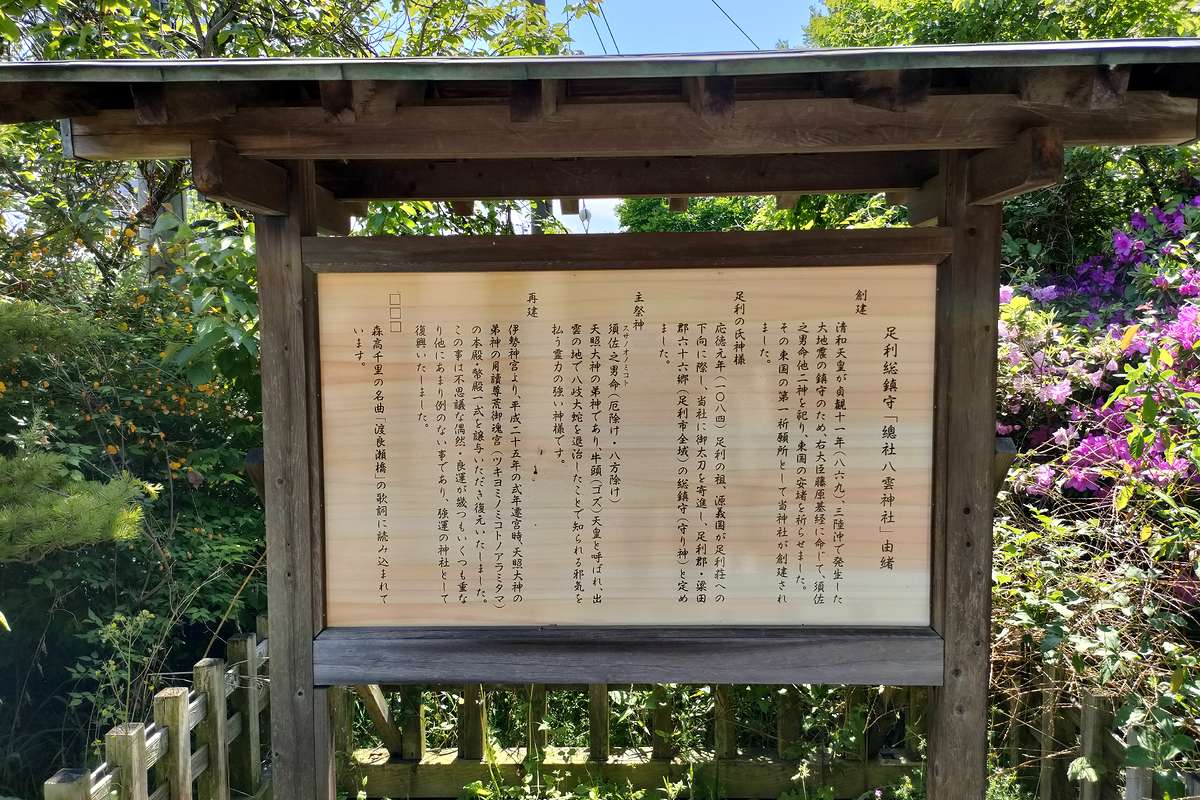 足利総鎮守「總社八雲神社」由緒
創建
清和天皇が貞観十一年(八六九)、三陸沖で発生した
大地震の鎮守のため右大臣藤原基経に命じて、須佐
之男命他二神を祀り、東国の安堵を祈らせました。
その東国の第一祈願所として当神社が創建され
ました。
足利の氏神様
応徳元年(一〇八四)足利の祖、源義国が足利荘への
下向に際し、当社に御太刀を寄進し、足利郡・梁田
郡六十六郷(足利市全域)の総鎮守(守り神)と定め
ました。
主祭神
スサノオノミコト
須佐之男命(厄除け・八方除け)
天照大神の弟神であり牛頭(ゴズ)天皇と呼ばれ、出
雲の地で八岐大蛇を退治したことで知られる邪気を
払う霊力の強い神様です。
再建
伊勢神宮より、平成二十五年の式年遷宮時、天照大神の
弟神の月讀尊荒御魂宮(ツキヨミノミコトノアラミタマ)
の本殿・幣殿一式を譲与いただき復元いたしました。
この事は不思議な偶然・良運が幾つもいくつも重な
り他にあまり例のない事であり、強運の神社として
復興いたしました。
□□□
森高千里の名曲「渡良瀬橋」の歌詞に読み込まれて
います。